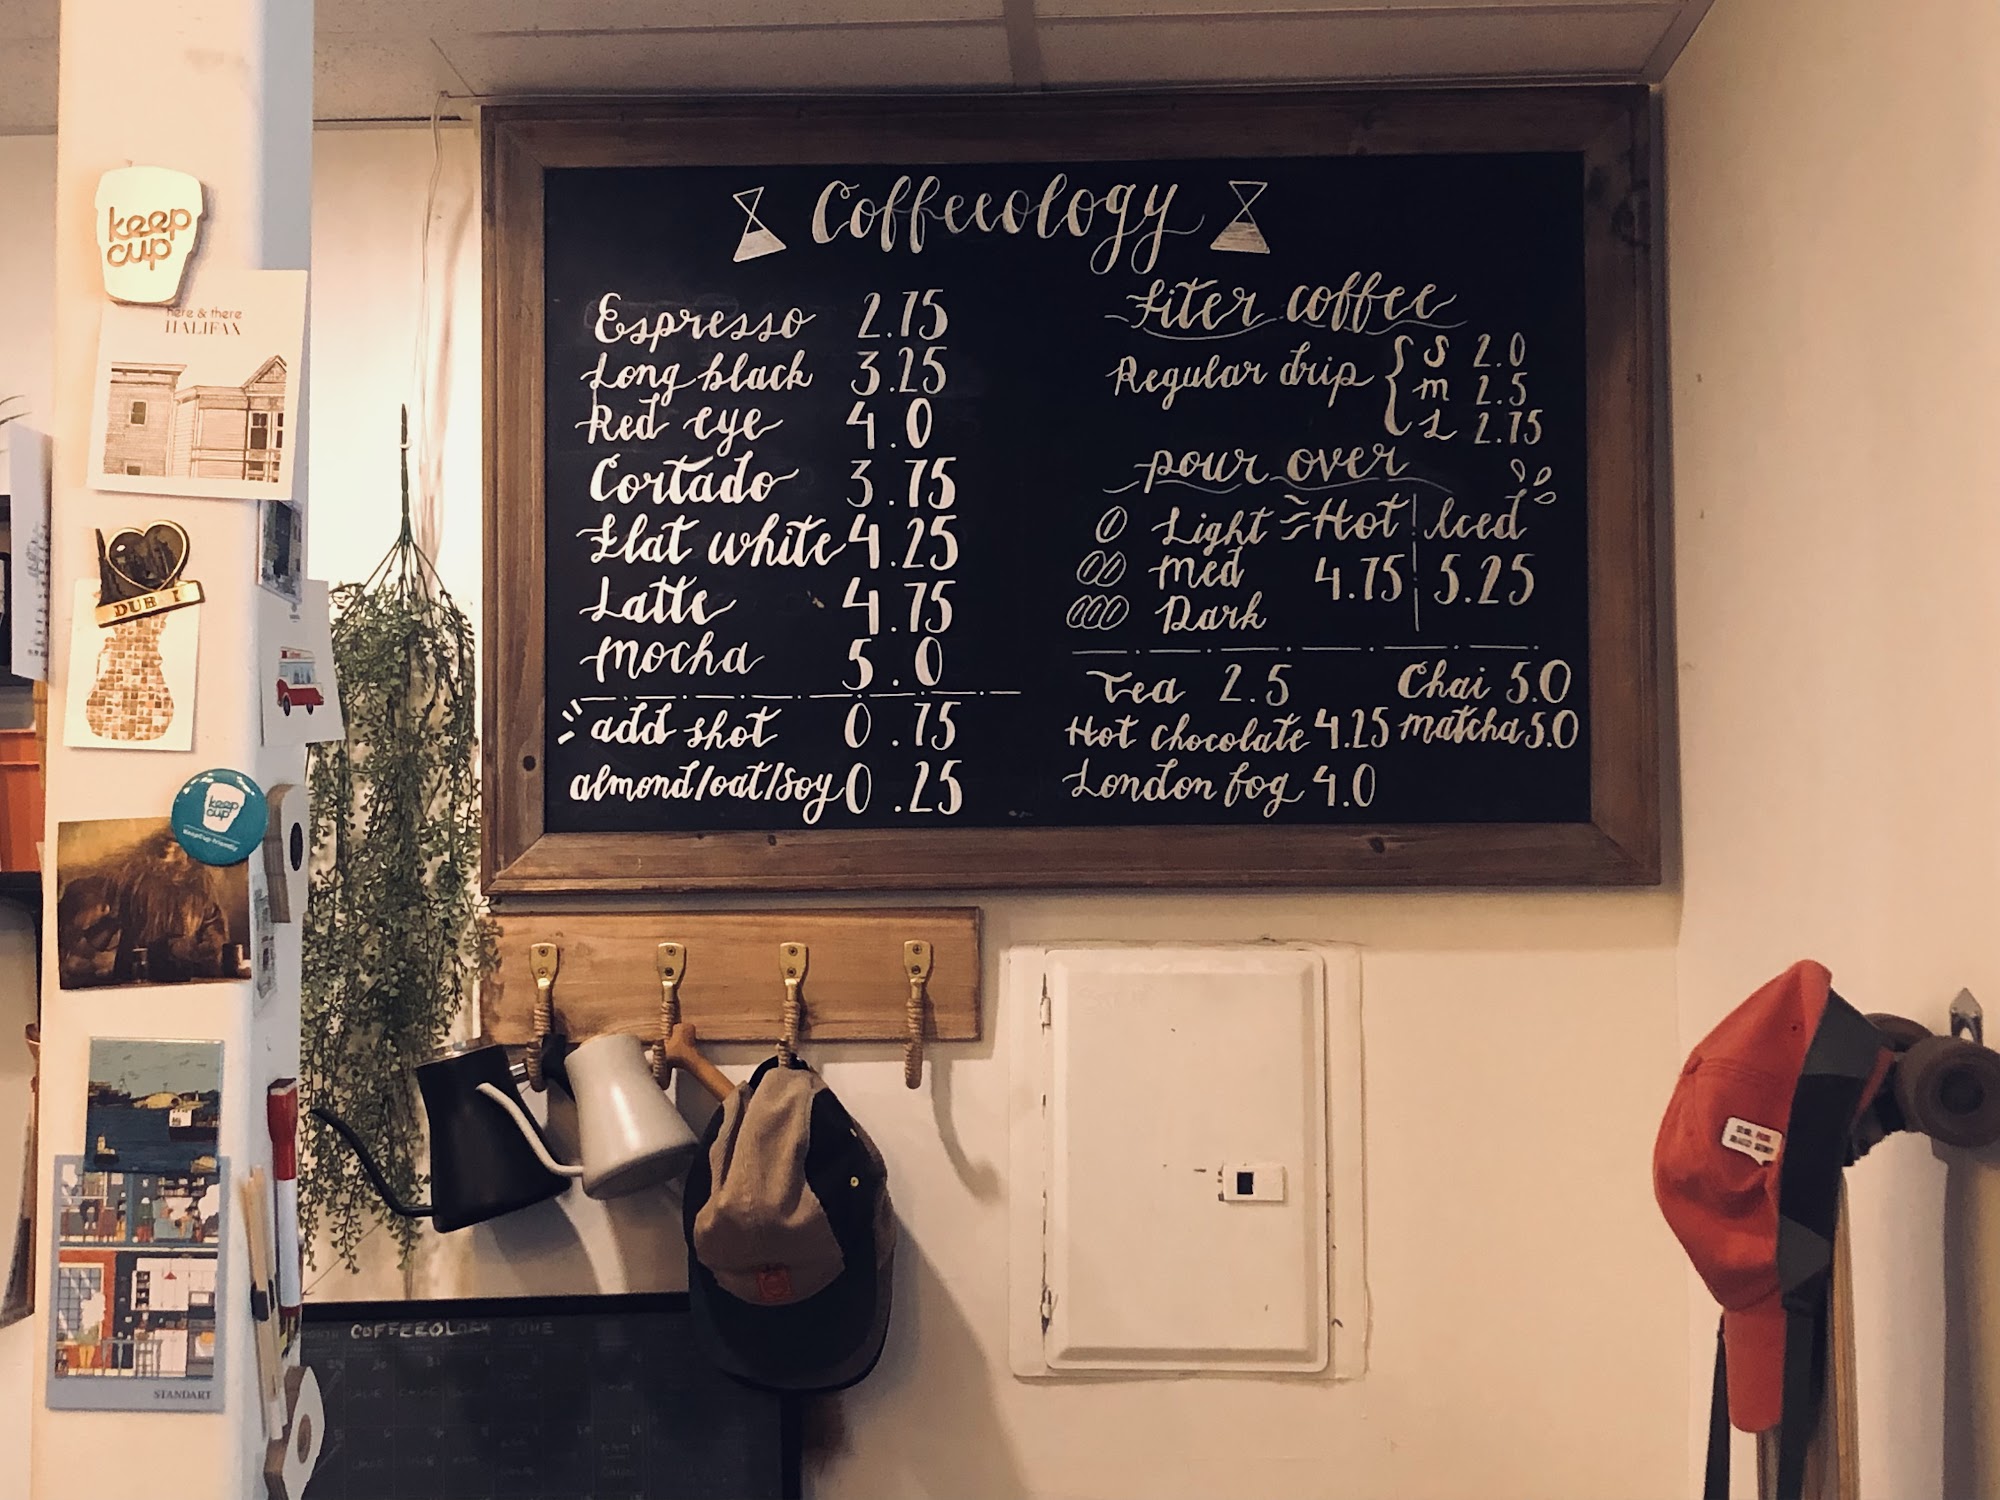 Coffeeology
Espresso 2.75
Long black 3.25
Red eye 4.0
Cortado 3.75
Flat white 4.25
Latte 4.75
Mocha 5.0
add shot 0.75
almond/oat/soy 0.25
Fiter coffee
Regular drip { S 2.0
M 2.5
L 2.75
pour over
Light Hot Iced
Med 4.75 5.25
Dark
Tea 2.5 Chai 5.0
Hot chocolate 4.25 matcha 5.0
London fog 4.0
keep
cup
here & there
HALIFAX
DUB I
keep
cup
KeepCup friendly
STANDART
COFFEEOLOGY JUNE